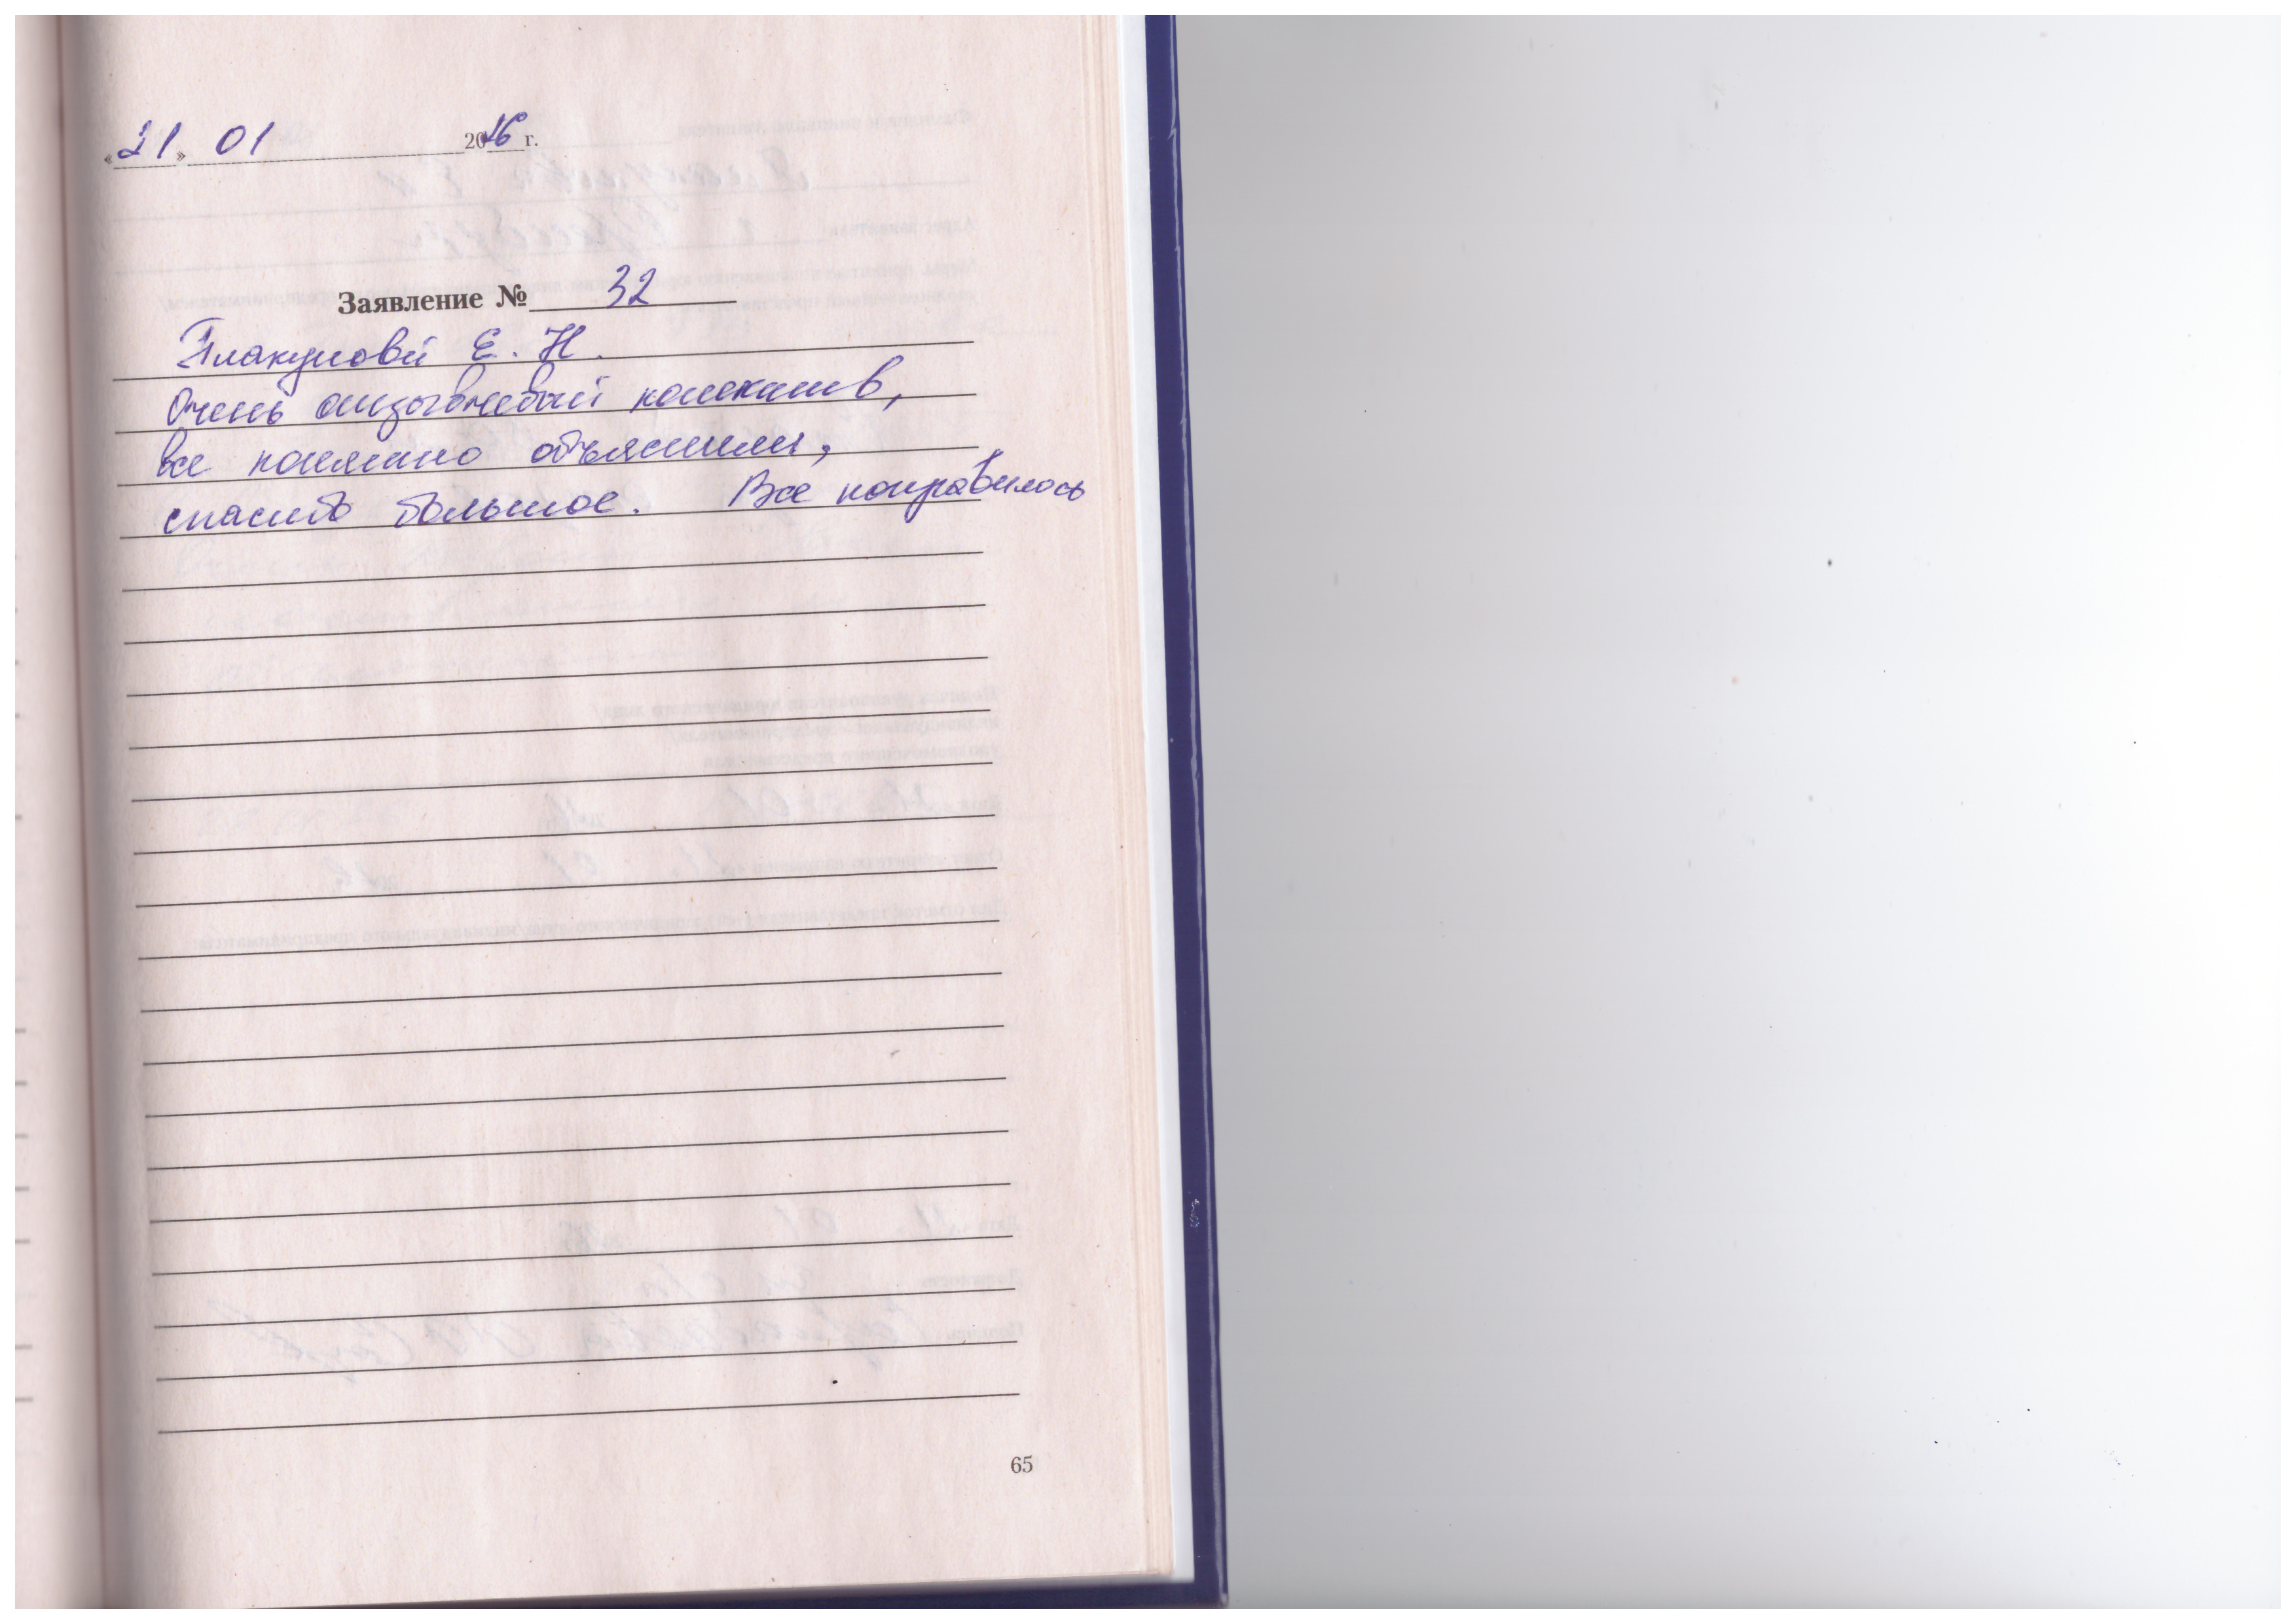 «21» 01 2016 г.
Заявление № 32
Плакуновой Е. Н.
Очень отзывчевый колектив,
все понятно объяснили,
спасибо большое. Все понравилось
65